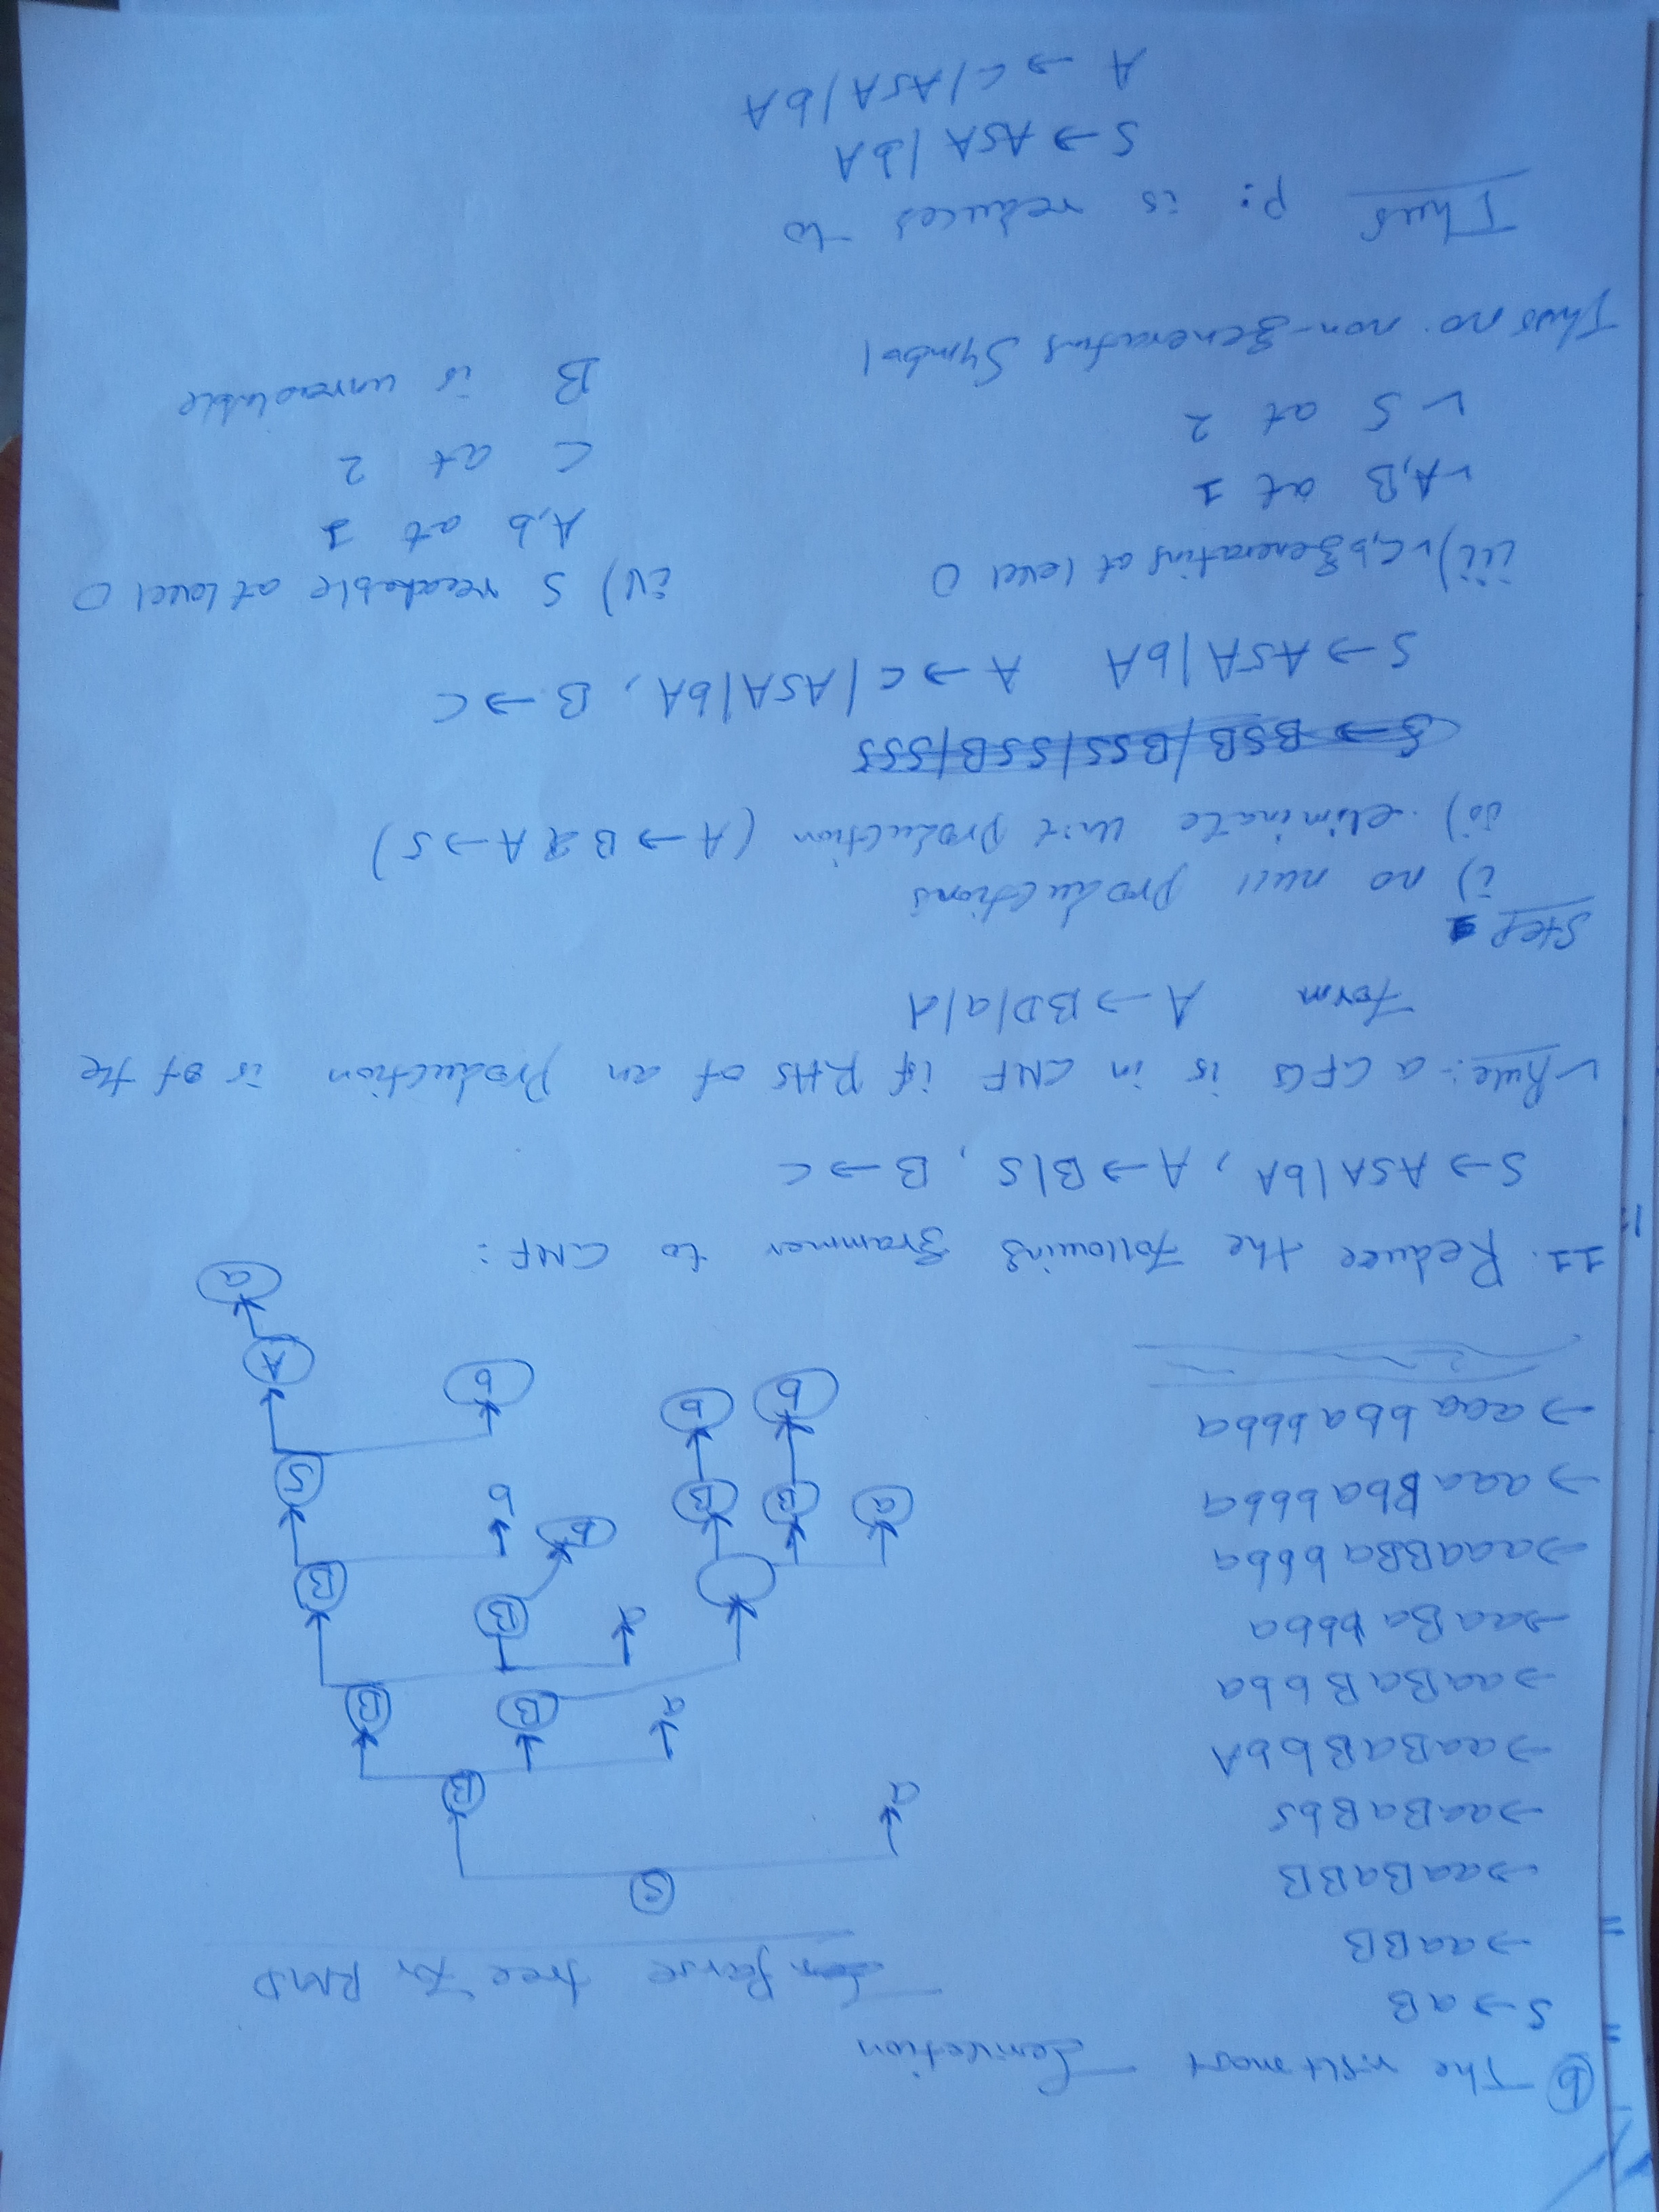 ⓑ The rightmost Derivation
S → aB
→ aaBB
→ aaBaBB
→ aaBaBbS
→ aaBaBbbA
→ aaBaBbba
→ aaBabbba
→ aaaBBabbba
→ aaaBbabbba
→ aaabbabbba
Parse tree For RMD
S
a B
a B B
a B B
a B B b b S
b b b A
a
11. Reduce the Following grammer to CNF:
S → ASA|bA, A → B|S, B → C
✓ Rule:- a CFG is in CNF if RHS of an Production is of the
Form A → BD/a/d
Step
i) no null Productions
ii) eliminate Unit Production (A → B & A → S)
S → BSB/BSS/SSB/SSS
S → ASA|bA A → C|ASA|bA, B → C
iii) ✓ C,b generating at level 0
✓ A,B at 1
✓ S at 2
Thus no non-generating Symbol
iv) S reachable at level 0
A,b at 1
C at 2
B is unreachable
Thus P: is reduces to
S → ASA|bA
A → C/ASA/bA